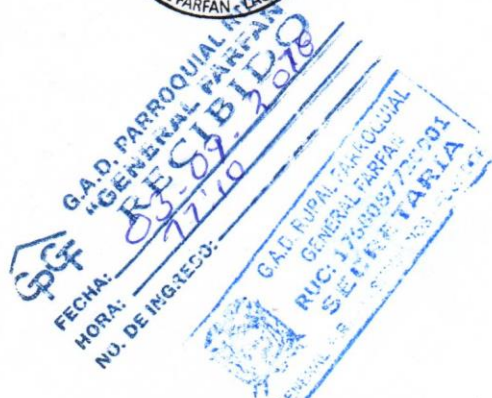 PARFAN
G.A.D. PARROQUIAL
"GENERAL FARFAN
RECIBIDO
GPGF
FECHA: 03-09-2018
HORA: 11:10
NO. DE INGRESO:
G.A.D. RURAL PARROQUIAL
GENERAL FARFAN
RUC:
SECRETARIA